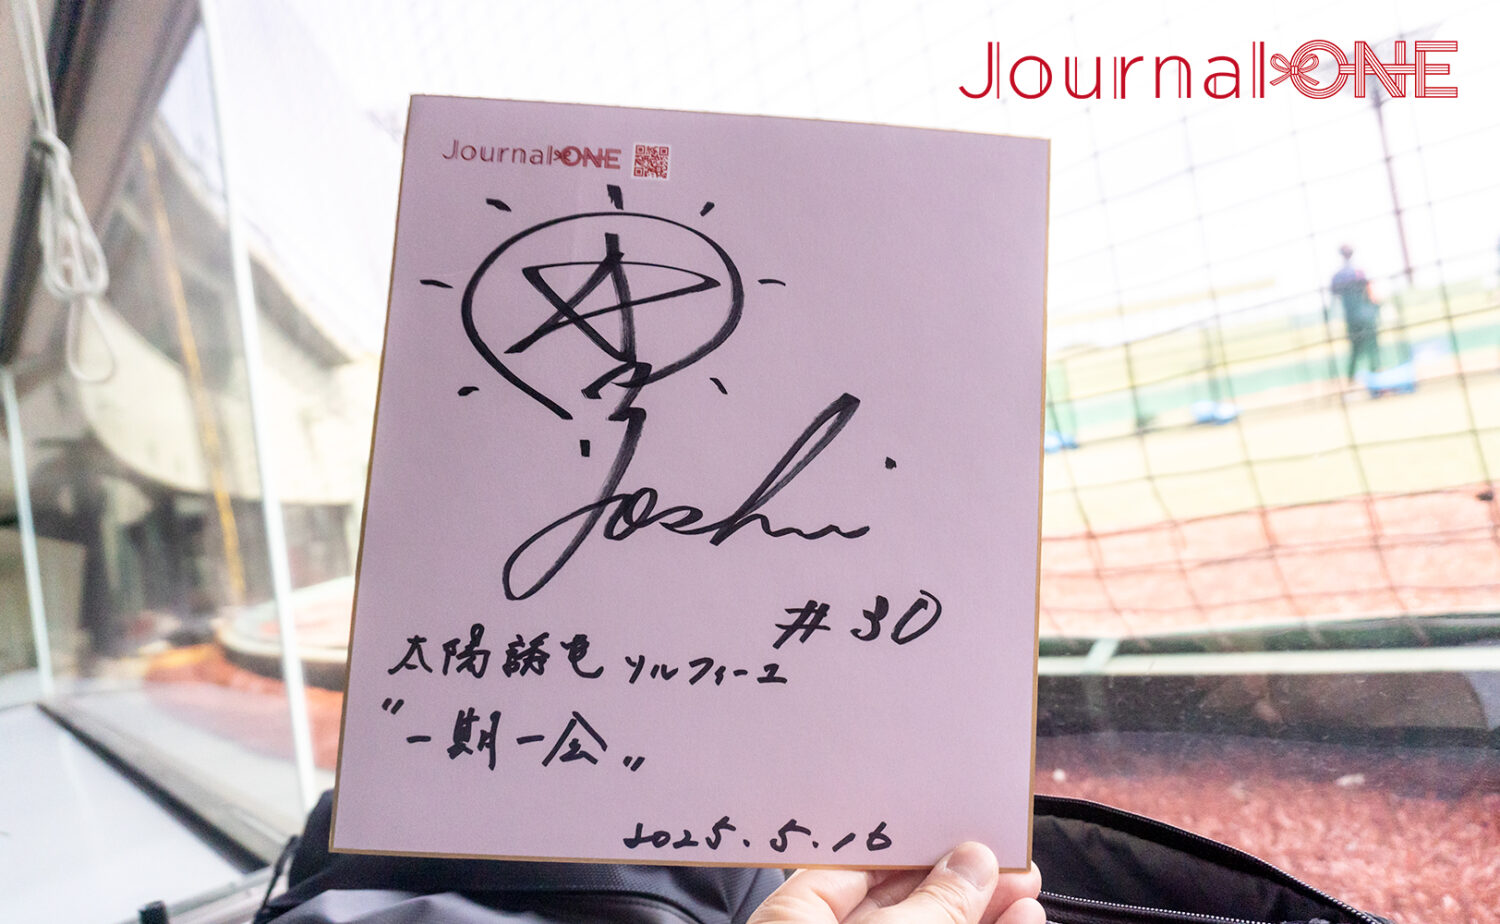 Journal ONE
Journal ONE
Yoshi
#30
太陽誘電 ソルフィーユ
"一期一会"
2025.5.16